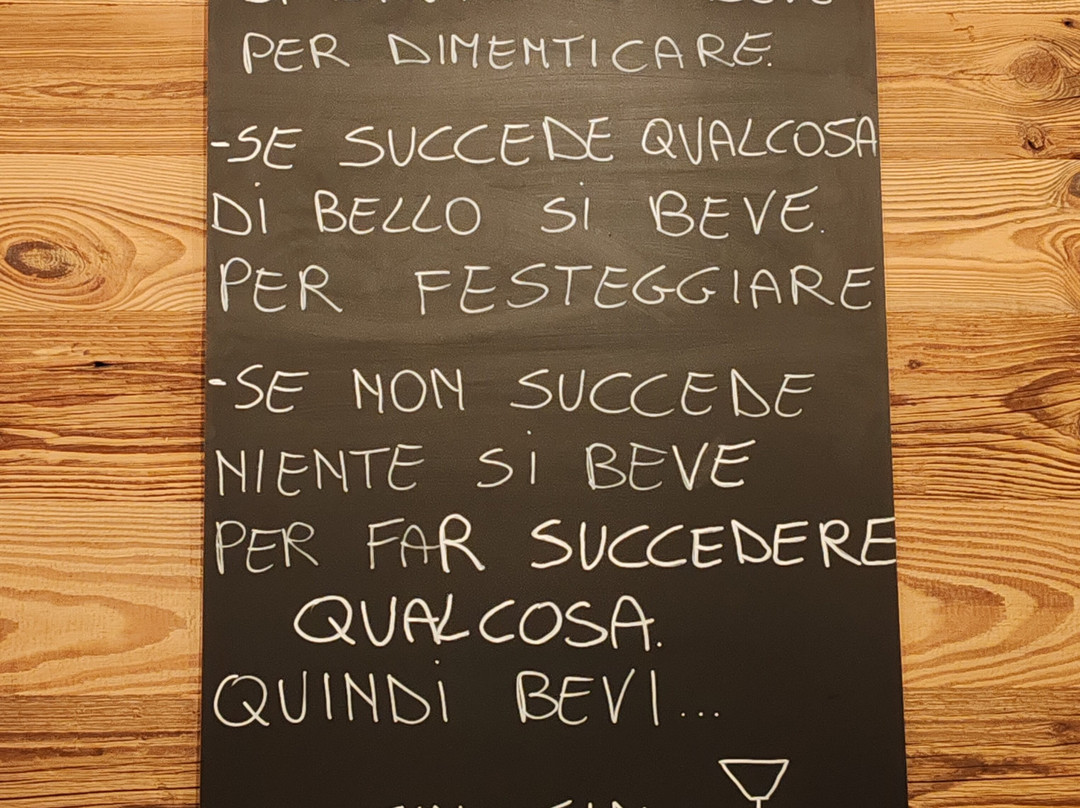 PER DIMENTICARE.
-SE SUCCEDE QUALCOSA
Di BELLO Si BEVE.
PER FESTEGGIARE
-SE NON SUCCEDE
NIENTE Si BEVE
PER FAR SUCCEDERE
QUALCOSA.
QUINDi BEVI...